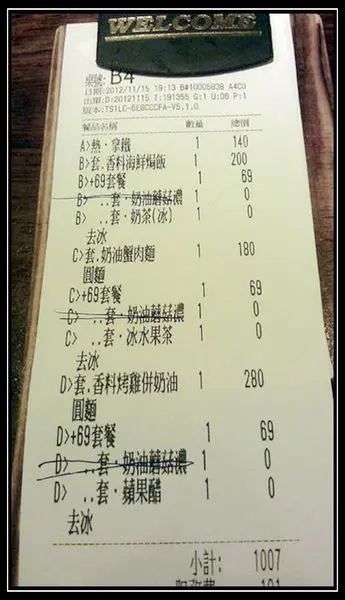 WELCOME
桌號: B4
日期:2012/11/15 19:13 B#10005838 A4C0
出單D:20121115 T:191355 G:1 U:06 P:1
版本:TS1LC-8E8CCCFA-V5.1.0
餐品名稱 數量 總價
A>熱‧拿鐵 1 140
B>套.香料海鮮焗飯 1 200
B>+69套餐 1 69
B> ..套‧奶油蘑菇濃 1 0
B> ..套‧奶茶(冰) 1 0
去冰
C>套.奶油蟹肉麵 1 180
圓麵
C>+69套餐 1 69
C> ..套‧奶油蘑菇濃 1 0
C> ..套‧冰水果茶 1 0
去冰
D>套.香料烤雞併奶油 1 280
圓麵
D>+69套餐 1 69
D> ..套‧奶油蘑菇濃 1 0
D> ..套‧蘋果醋 1 0
去冰
小計: 1007